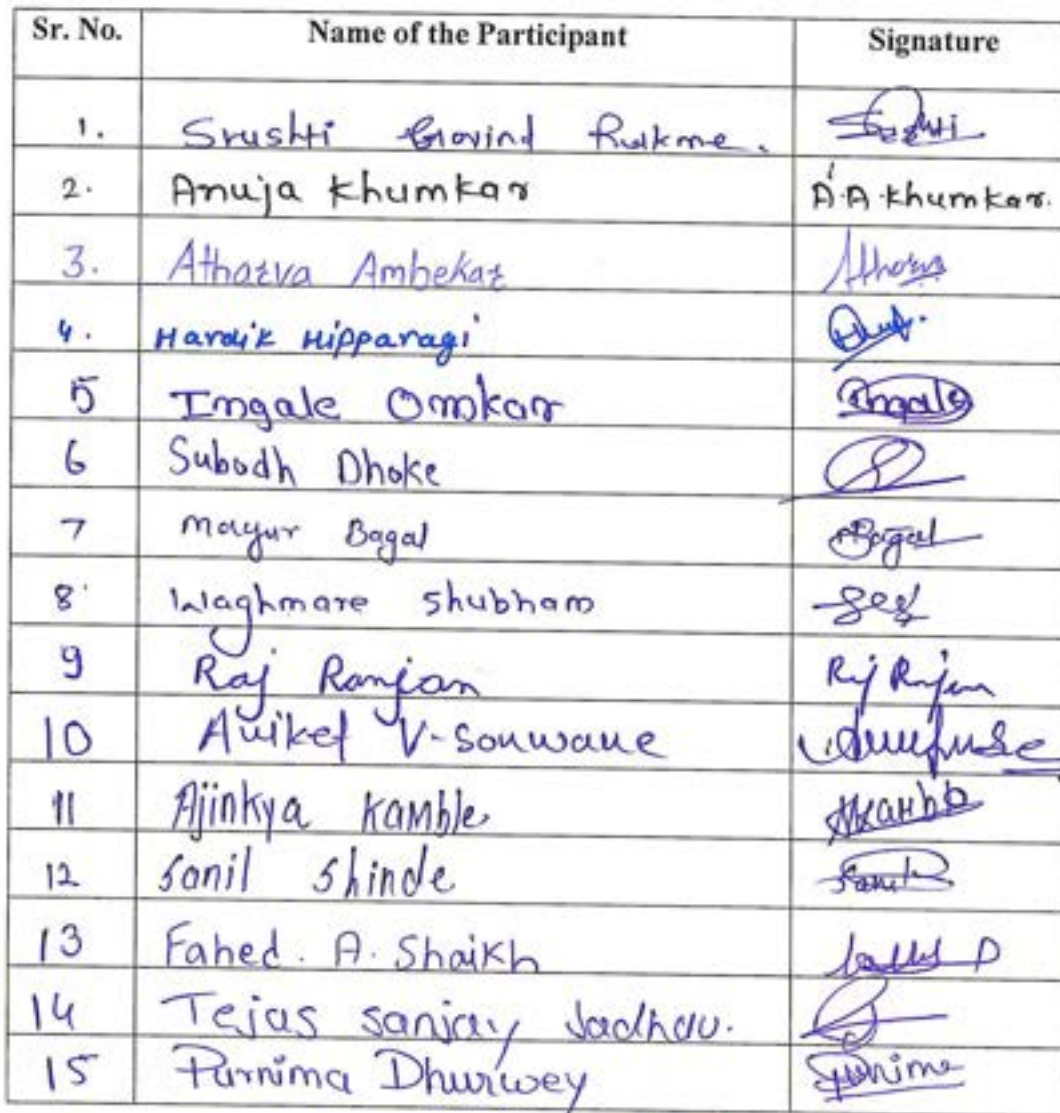 Sr. No. Name of the Participant Signature
1. Srushti Govind Rukme. Srushti
2. Anuja Khumkar A.A.Khumkar.
3. Atharva Ambekar Atharva
4. Hardik Hipparagi
5 Ingale Omkar Ingale
6 Subodh Dhoke
7 Mayur Bagal Bagal
8 Waghmare Shubham
9 Raj Ranjan Raj Ranjan
10 Aniket V-Sonwane
11 Ajinkya Kamble
12 Sanil Shinde Sanil
13 Fahed. A. Shaikh
14 Tejas Sanjay Jadhav.
15 Purnima Dhurwey Purnima